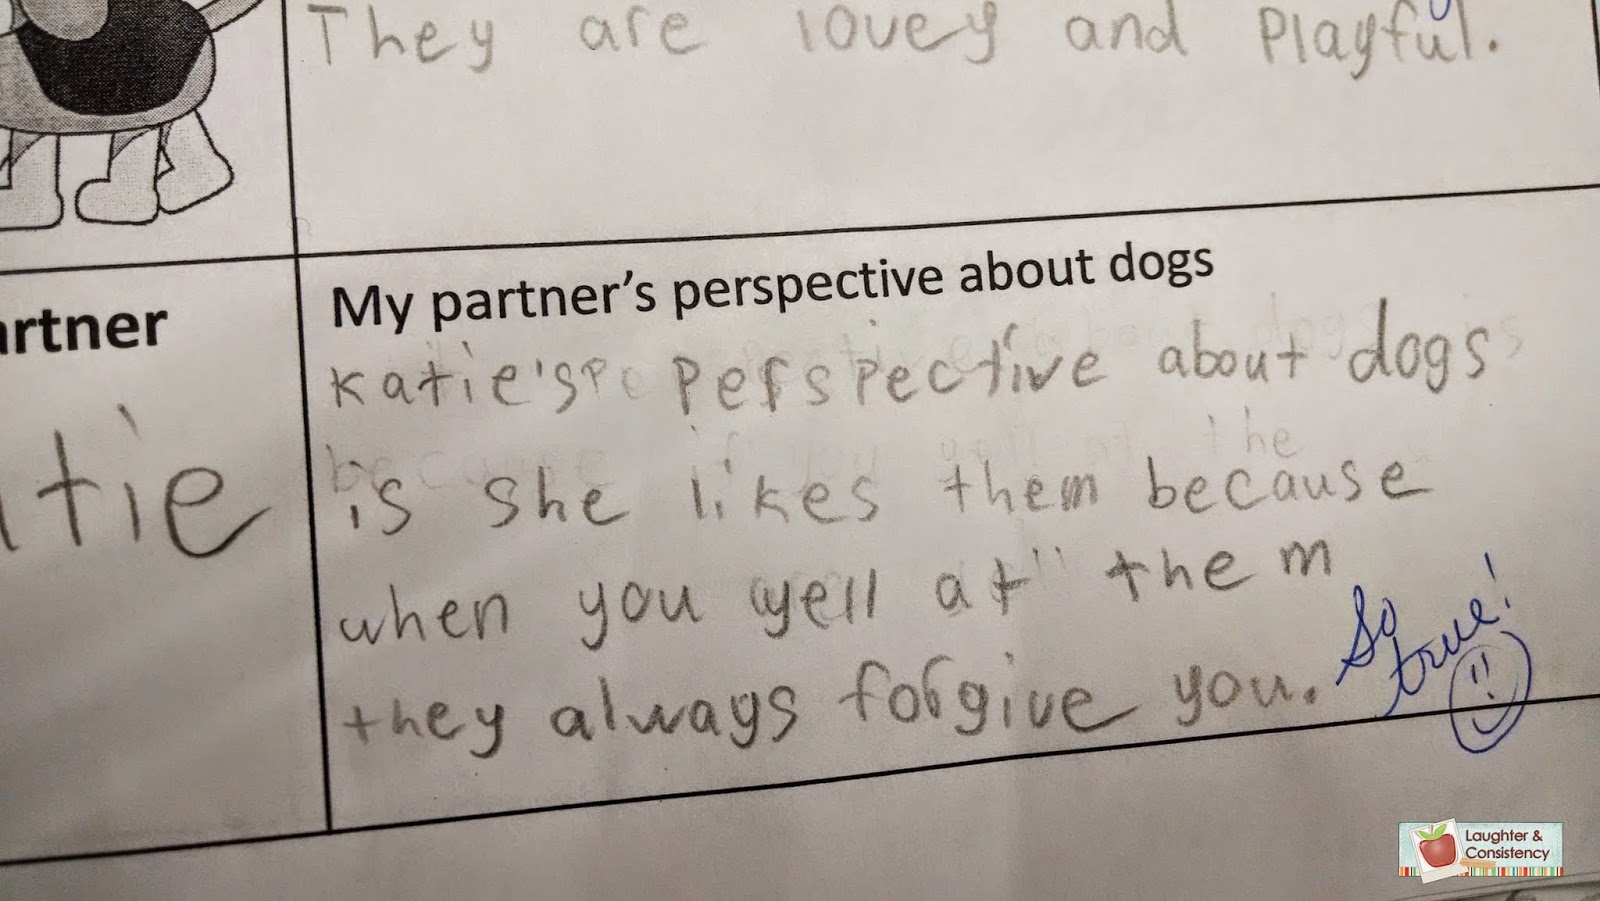 They are lovey and Playful.
artner
tie
My partner's perspective about dogs
Katie's Perspective about dogs
is she likes them because
when you yell at them
they always forgive you.
So
true!
Laughter &
Consistency